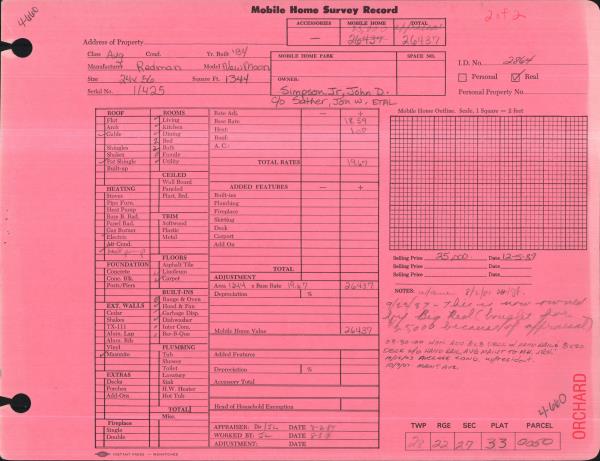 4-660
Mobile Home Survey Record
2 of 2
ACCESSORIES MOBILE HOME TOTAL
— 26437 26437
Address of Property
Class Avg Cond. Yr. Built '84
Manufacturer Redman Model New Moon
Size 24x56 Square Ft. 1344
Serial No. 11425
MOBILE HOME PARK SPACE NO.
OWNER:
Simpson, Jr, John D.
c/o Sather, Jon W, ETAL
I.D. No. 2864
Personal Real
ROOF
Flat
Arch
Gable
Shingles
Shakes
Fat Shingle
Built-up
HEATING
Stoves
Pipe Furn.
Heat Pump
Base B. Rad.
Panel Rad.
Gas Burner
Electric
Air Cond.
FOUNDATION
Concrete
Conc. Blk.
Posts/Piers
EXT. WALLS
Cedar
Shakes
TX-111
Alum. Lap
Alum. Rib
Vinyl
Masonite
EXTRAS
Decks
Porches
Add-Ons
Fireplace
Single
Double
ROOMS
Living
Kitchen
Dining
Bed
Bath
Family
Utility
CEILED
Wall Board
Paneled
Plast. Brd.
TRIM
Softwood
Plastic
Metal
FLOORS
Asphalt Tile
Linoleum
Carpet
BUILT-INS
Range & Oven
Hood & Fan
Garbage Disp.
Dishwasher
Inter Com.
Bar-B-Que
PLUMBING
Tub
Shower
Toilet
Lavatory
Sink
H.W. Heater
Hot Tub
TOTAL
Misc.
Rate Adj. — +
Base Rate 18.59
Heat:
Roof:
A. C.:
TOTAL RATES 19.67
ADDED FEATURES — +
Built-ins
Plumbing
Fireplace
Skirting
Deck
Carport
Add On
TOTAL
ADJUSTMENT
Area 1344 x Base Rate 19.67 26437
Depreciation %
Mobile Home Value 26437
Added Features
Depreciation %
Accessory Total
Head of Household Exemption
APPRAISER: DATE
WORKED BY: JL DATE
ADJUSTMENT: DATE
Mobile Home Outline. Scale, 1 Square = 2 feet
Selling Price 25,000 Date 12-5-87
Selling Price Date
Selling Price Date
NOTES:
This is now owned
by Big Red (bought for
25000 because of appraisal)
ORCHARD
4-660
TWP RGE SEC PLAT PARCEL
28 22 27 33 0050